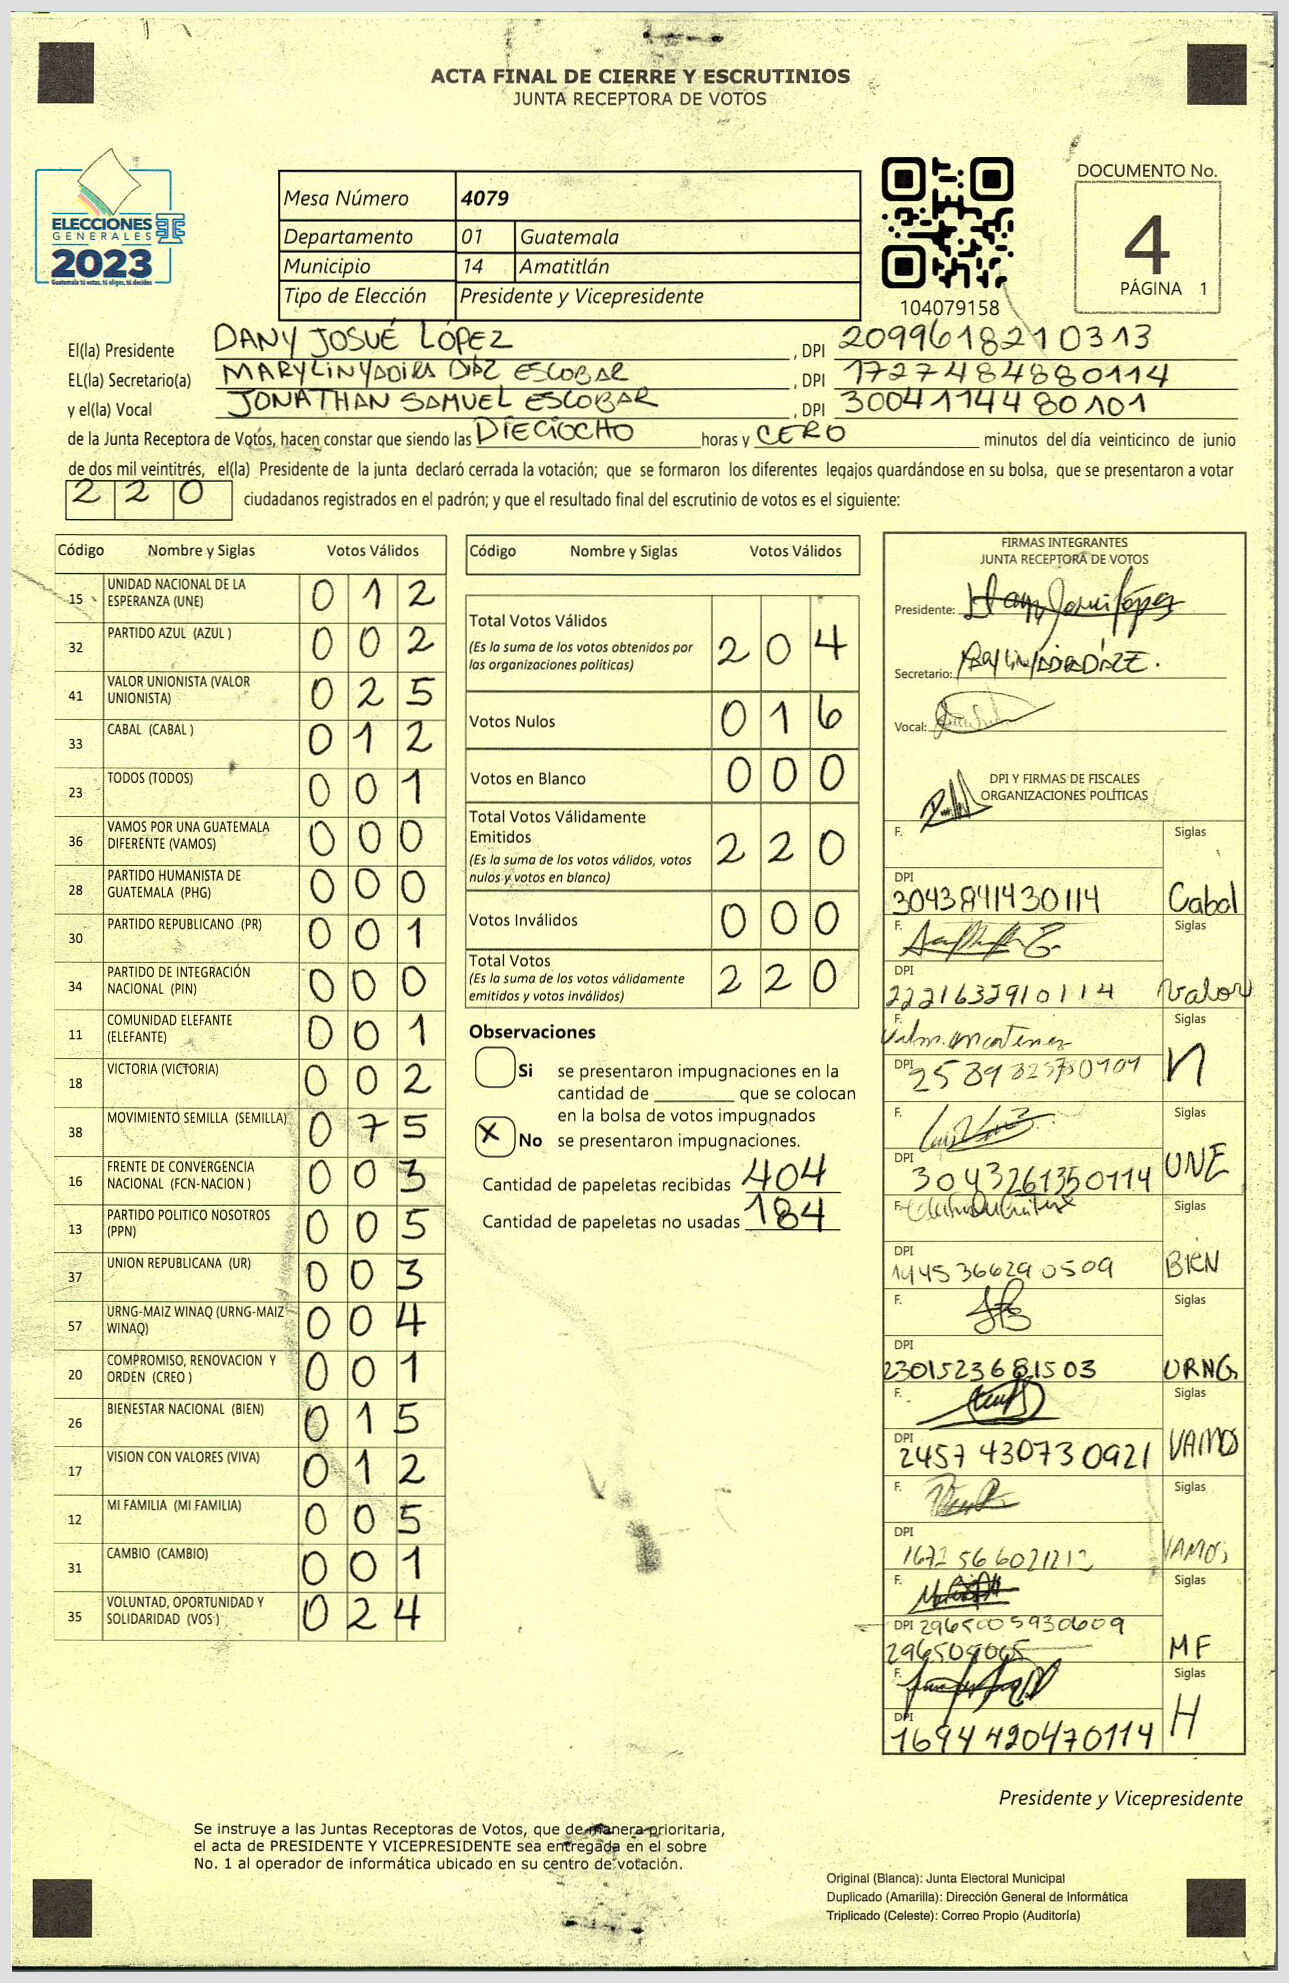 ACTA FINAL DE CIERRE Y ESCRUTINIOS
JUNTA RECEPTORA DE VOTOS
ELECCIONES
GENERALES
2023
Guatemala tú votas, tú eliges, tú decides
Mesa Número 4079
Departamento 01 Guatemala
Municipio 14 Amatitlán
Tipo de Elección Presidente y Vicepresidente
104079158
DOCUMENTO No.
4
PÁGINA 1
El(la) Presidente DANY JOSUÉ LÓPEZ, DPI 2099618210313
EL(la) Secretario(a) MARYLINYADIRA DIAZ ESCOBAR, DPI 1727484880114
y el(la) Vocal JONATHAN SAMUEL ESCOBAR, DPI 3004114480101
de la Junta Receptora de Votos, hacen constar que siendo las DIECIOCHO horas y CERO minutos del día veinticinco de junio
de dos mil veintitrés, el(la) Presidente de la junta declaró cerrada la votación; que se formaron los diferentes legajos quardándose en su bolsa, que se presentaron a votar
220 ciudadanos registrados en el padrón; y que el resultado final del escrutinio de votos es el siguiente:
Código Nombre y Siglas Votos Válidos
15 UNIDAD NACIONAL DE LA ESPERANZA (UNE) 012
32 PARTIDO AZUL (AZUL ) 002
41 VALOR UNIONISTA (VALOR UNIONISTA) 025
33 CABAL (CABAL ) 012
23 TODOS (TODOS) 001
36 VAMOS POR UNA GUATEMALA DIFERENTE (VAMOS) 000
28 PARTIDO HUMANISTA DE GUATEMALA (PHG) 000
30 PARTIDO REPUBLICANO (PR) 001
34 PARTIDO DE INTEGRACIÓN NACIONAL (PIN) 000
11 COMUNIDAD ELEFANTE (ELEFANTE) 001
18 VICTORIA (VICTORIA) 002
38 MOVIMIENTO SEMILLA (SEMILLA) 075
16 FRENTE DE CONVERGENCIA NACIONAL (FCN-NACION ) 003
13 PARTIDO POLITICO NOSOTROS (PPN) 005
37 UNION REPUBLICANA (UR) 003
57 URNG-MAIZ WINAQ (URNG-MAIZ WINAQ) 004
20 COMPROMISO, RENOVACION Y ORDEN (CREO ) 001
26 BIENESTAR NACIONAL (BIEN) 015
17 VISION CON VALORES (VIVA) 012
12 MI FAMILIA (MI FAMILIA) 005
31 CAMBIO (CAMBIO) 001
35 VOLUNTAD, OPORTUNIDAD Y SOLIDARIDAD (VOS ) 024
Código Nombre y Siglas Votos Válidos
Total Votos Válidos 204
(Es la suma de los votos obtenidos por
las organizaciones políticas)
Votos Nulos 016
Votos en Blanco 000
Total Votos Válidamente
Emitidos 220
(Es la suma de los votos válidos, votos
nulos y votos en blanco)
Votos Inválidos 000
Total Votos 220
(Es la suma de los votos válidamente
emitidos y votos inválidos)
Observaciones
Si se presentaron impugnaciones en la
cantidad de ________ que se colocan
en la bolsa de votos impugnados
X No se presentaron impugnaciones.
Cantidad de papeletas recibidas 404
Cantidad de papeletas no usadas 184
FIRMAS INTEGRANTES
JUNTA RECEPTORA DE VOTOS
Presidente:
Secretario:
Vocal:
DPI Y FIRMAS DE FISCALES
ORGANIZACIONES POLÍTICAS
F. Siglas
DPI 3043841430114 Cabal
F. Siglas
DPI 2221632910114 Valor
F. Siglas
DPI N
F. Siglas
DPI 3043261350114 UNE
F. Siglas
DPI 1445366290509 BIEN
F. Siglas
DPI 2301523681503 URNG
F. Siglas
DPI 2457430730921 VAMOS
F. Siglas
DPI VAMOS
F. Siglas
DPI MF
F. Siglas
DPI 1694420470114 H
Presidente y Vicepresidente
Se instruye a las Juntas Receptoras de Votos, que de manera prioritaria,
el acta de PRESIDENTE Y VICEPRESIDENTE sea entregada en el sobre
No. 1 al operador de informática ubicado en su centro de votación.
Original (Blanca): Junta Electoral Municipal
Duplicado (Amarilla): Dirección General de Informática
Triplicado (Celeste): Correo Propio (Auditoría)